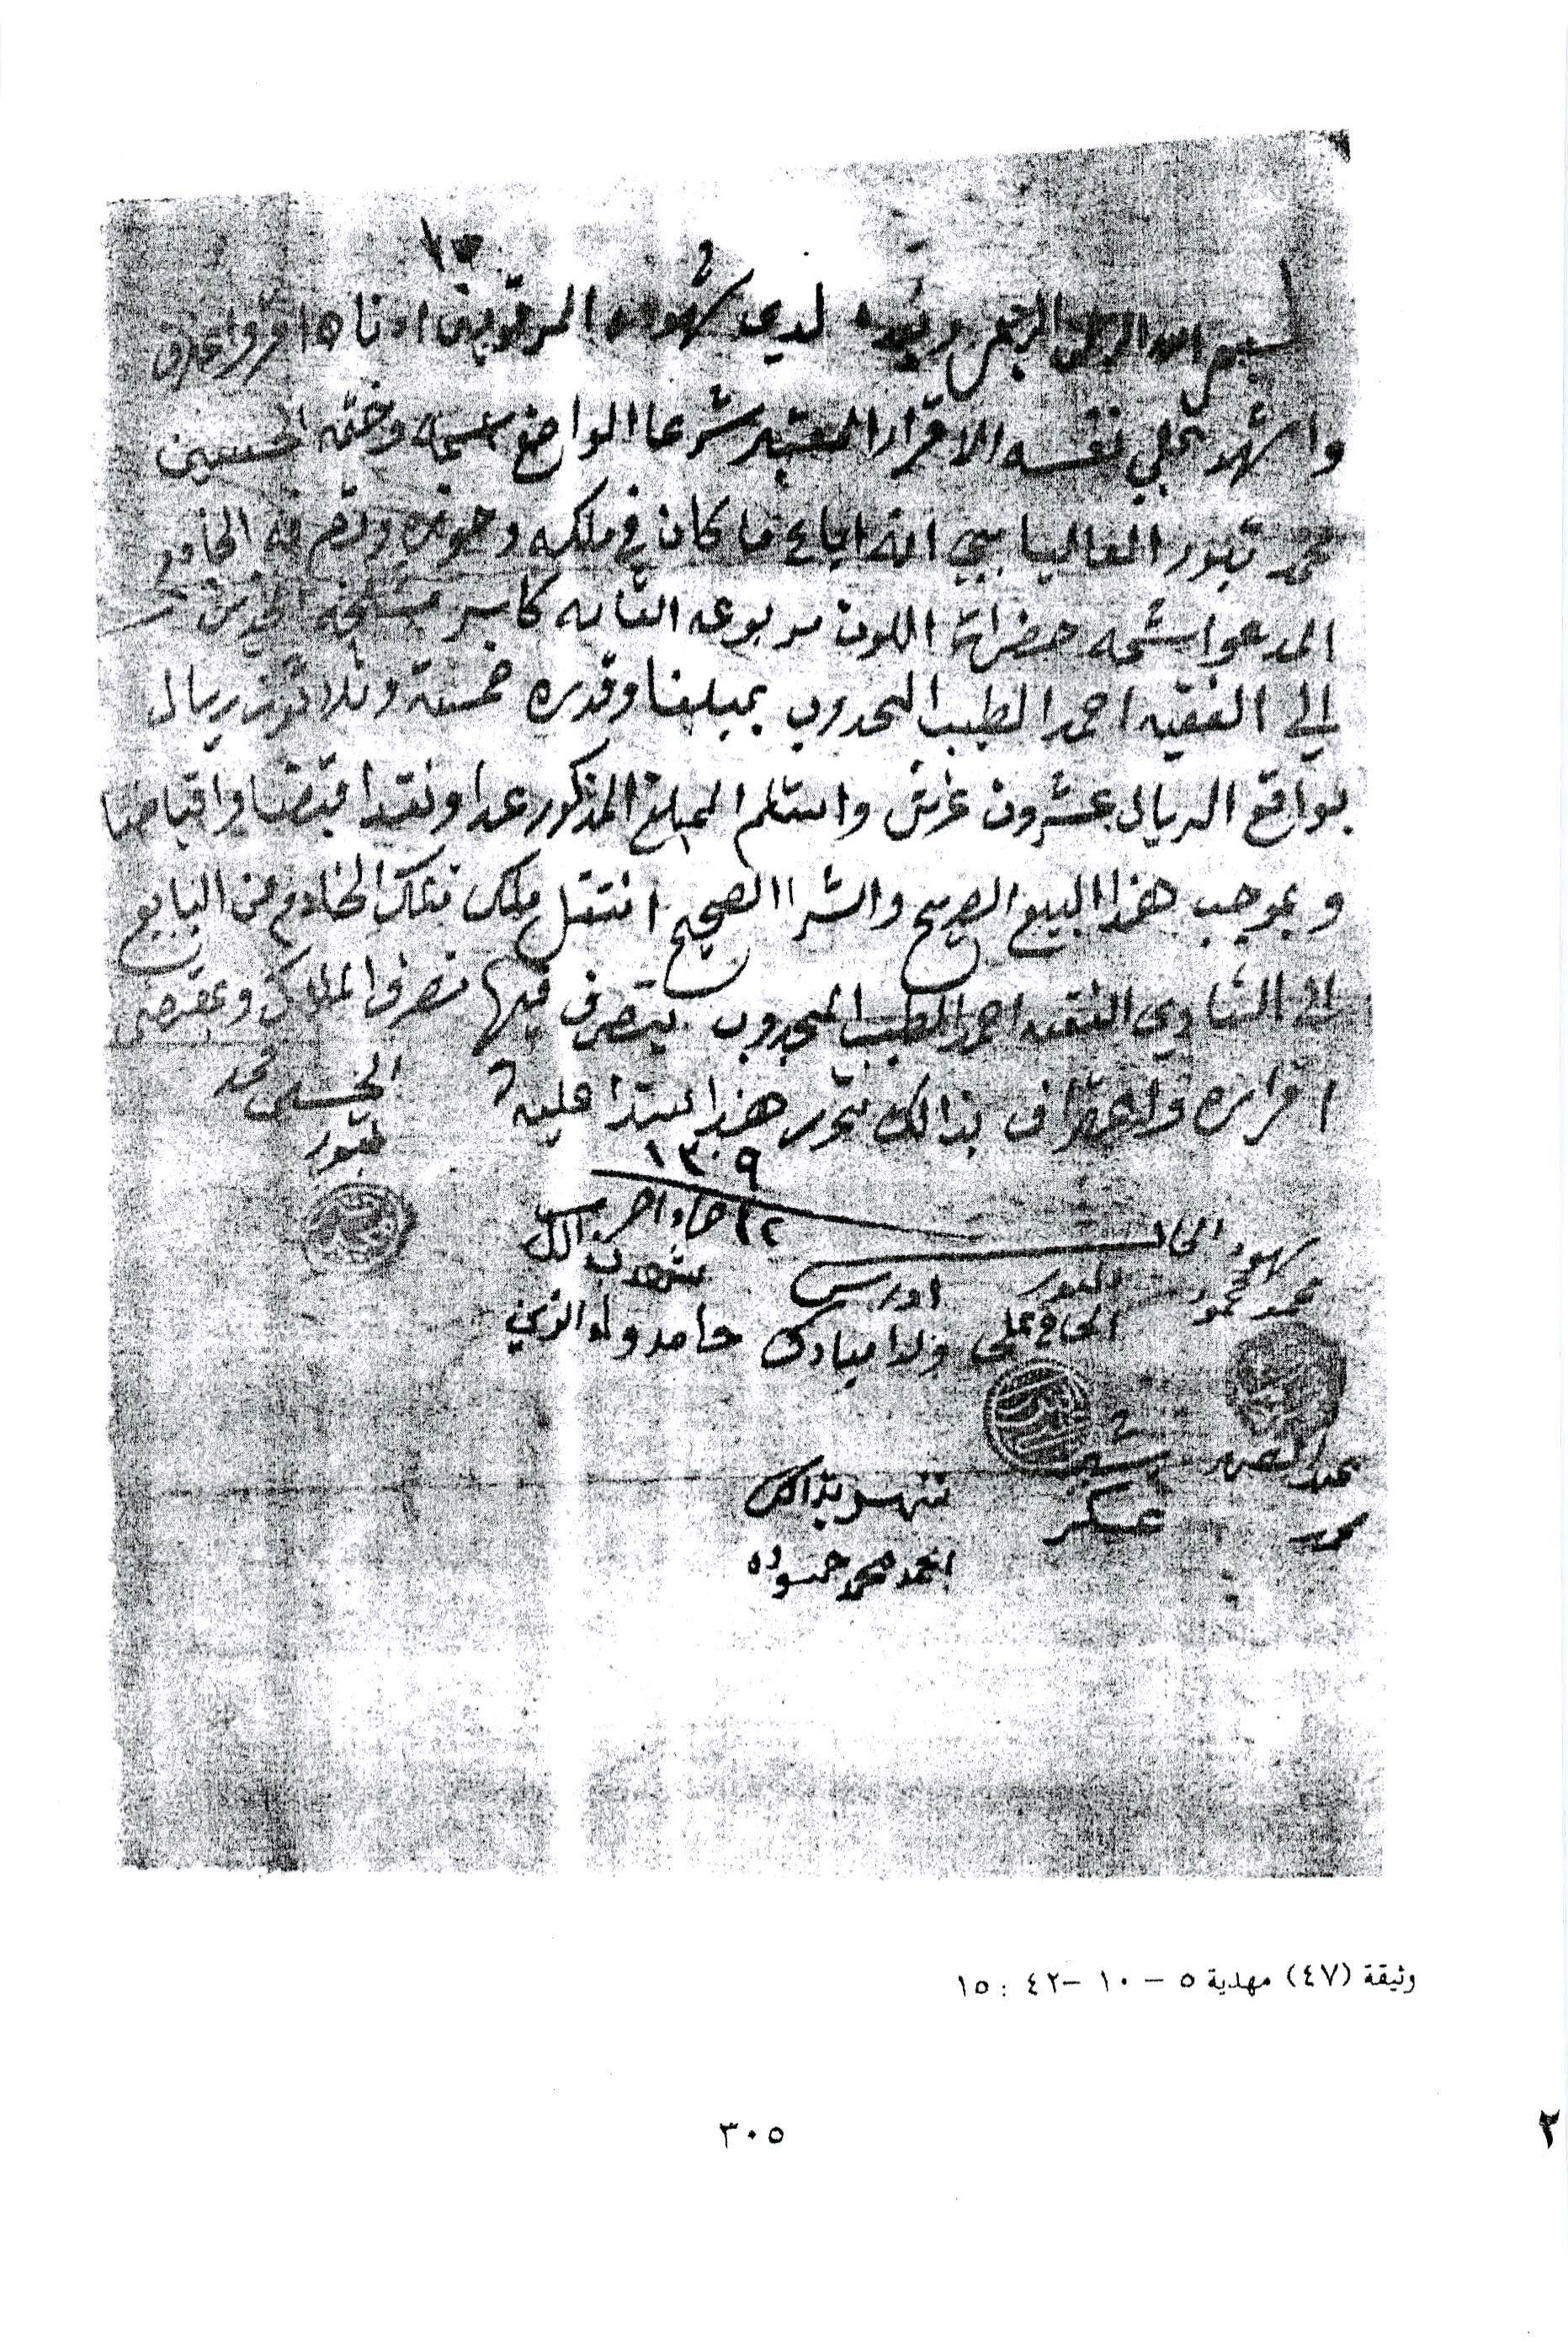 بسم الله الرحمن الرحيم وبعده لدى شهوده المرقومين ادناه اقر واعترف
واشهد على نفسه الاقرار المعتبر شرعا الواضع اسمه وختمه الحسين
محمد تبور انه اباع ما كان في ملكه وحوزه الخادم
المدعوا خضراة اللون مربوعه القامه كاسر
الى الفقيه احمد الطيب المجدوب بمبلغا وقدره خمسة وثلاثون ريال
بواقع الريال عشرون غرش واستلم المبلغ المذكور عدا ونقدا قبضا واقباضا
وبموجب هذا البيع الصريح والشرا الصحيح انتقل ملك تلك الخادم من البايع
الى الشاري الفقيه احمد الطيب المجدوب يتصرف فيها تصرف الملاك وبمقتضى
اقراره واعترافه بذالك تحرر هذا سندا عليه
الحسين محمد
تبور
١٣٠٩
٢٢ جماد اخر
شهود الحال
محمد محمود
الحاج علي
ادريس
ولد مبارك
شهد بذالك
حامد ولد الزين
عبد الصمد
محمد
بشير
عسكر
شهد بذالك
احمد محمد حموده
وثيقة (٤٧) مهدية ٥ – ١٠ –٤٢ : ١٥
٣٠٥
٢